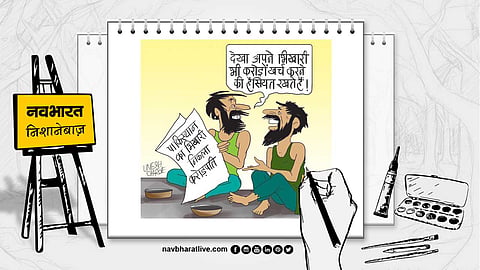 नवभारत
निशानेबाज़
देखा अपने भिखारी
भी करोड़ों खर्च करने
की हैसियत रखते हैं!
पाकिस्तान
का भिखारी
निकला
करोड़पति
navbharatlive.com